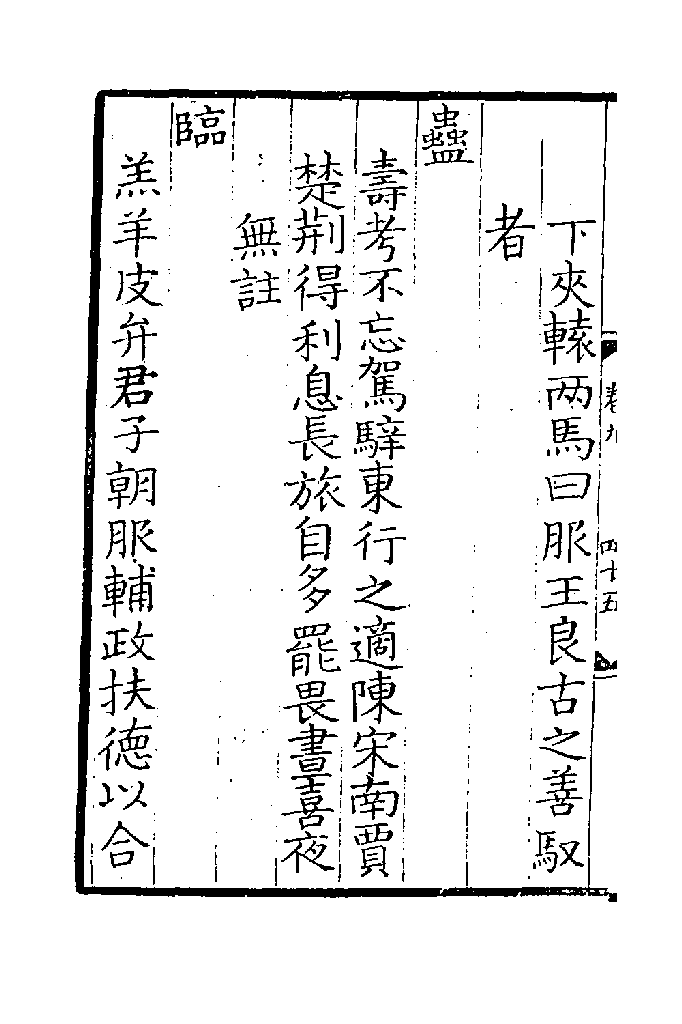 卷九
四十五
下夾轅两馬曰服王良古之善馭
者
蠱
壽考不忘駕騂東行之適陳宋南賈
楚荆得利息長旅自多罷畏晝喜夜
無註
臨
羔羊皮弁君子朝服輔政扶德以合